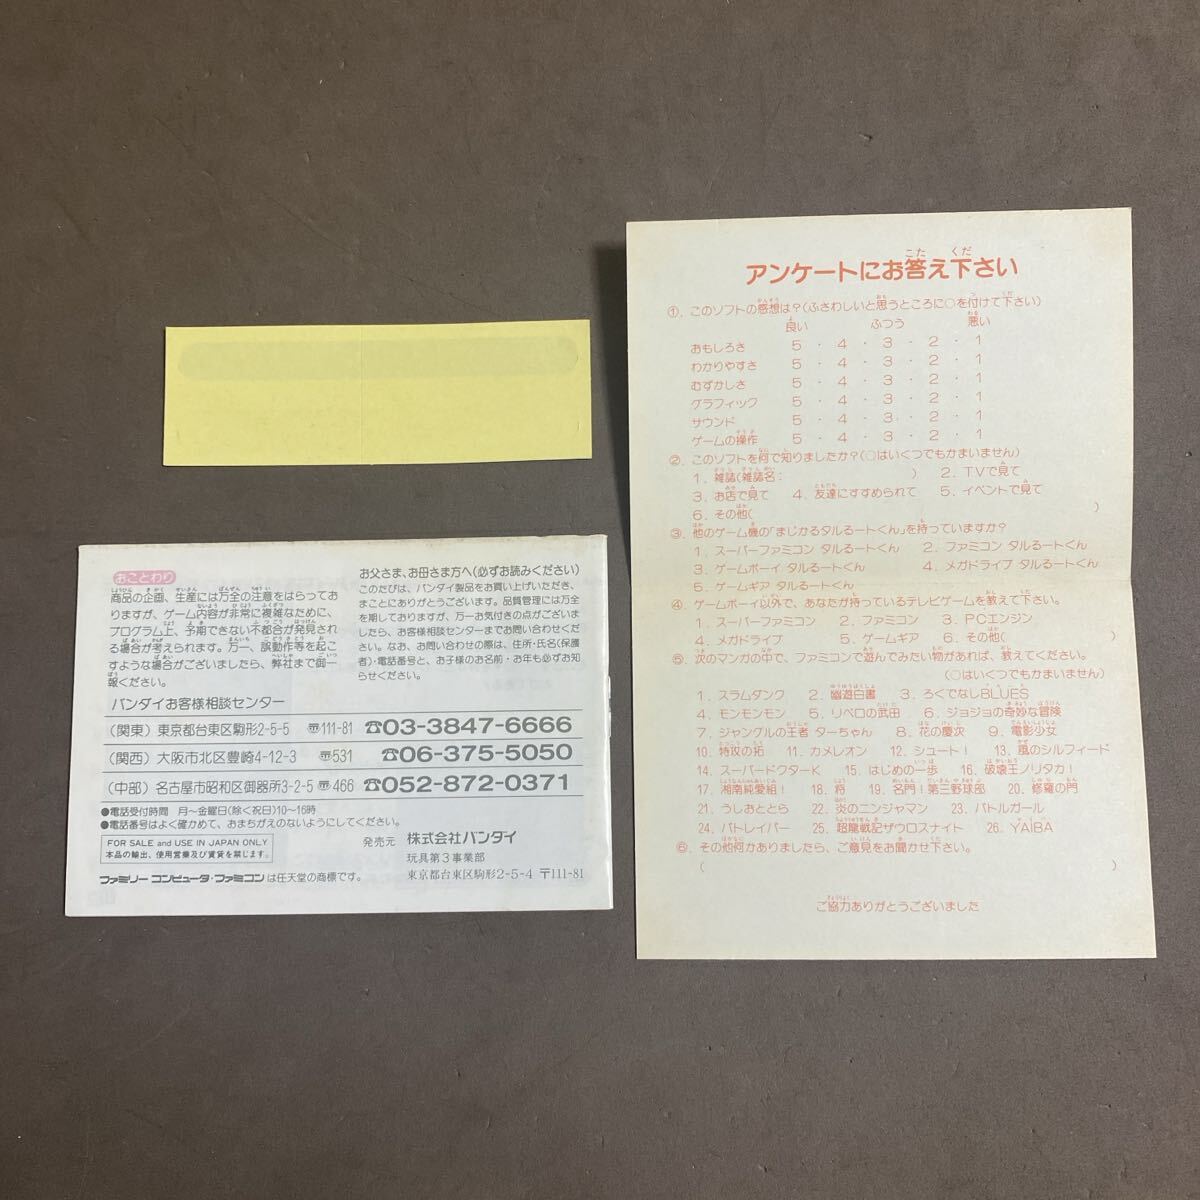 おことわり
商品の企画、生産には万全の注意をはらってお
りますが、ゲーム内容が非常に複雑なために、
プログラム上、予期できない不都合が発見され
る場合が考えられます。万一、誤動作等を起こ
すような場合がございましたら、弊社まで御一
報ください。
お父さま、お母さま方へ(必ずお読みください)
このたびは、バンダイ製品をお買い上げいただき、
まことにありがとうございます。品質管理には万全
を期しておりますが、万一お気付きの点がございま
したら、お客様相談センターまでお問い合わせくだ
さい。なお、お問い合わせの際は、住所・氏名(保護
者)・電話番号と、お子様のお名前・お年も必ずお知
らせください。
バンダイお客様相談センター
(関東) 東京都台東区駒形2-5-5 〠111-81 ☎03-3847-6666
(関西) 大阪市北区豊崎4-12-3 〠531 ☎06-375-5050
(中部) 名古屋市昭和区御器所3-2-5 〠466 ☎052-872-0371
●電話受付時間 月〜金曜日(除く祝日)10〜16時
●電話番号はよく確かめて、おまちがえのないようにしてください。
FOR SALE and USE IN JAPAN ONLY
本品の輸出、使用営業及び賃貸を禁じます。
発売元 株式会社バンダイ
玩具第3事業部
東京都台東区駒形2-5-4 〒111-81
ファミリーコンピュータ・ファミコンは任天堂の商標です。
アンケートにお答え下さい
①．このソフトの感想は？(ふさわしいと思うところに○を付けて下さい)
良い ふつう 悪い
おもしろさ 5 ・ 4 ・ 3 ・ 2 ・ 1
わかりやすさ 5 ・ 4 ・ 3 ・ 2 ・ 1
むずかしさ 5 ・ 4 ・ 3 ・ 2 ・ 1
グラフィック 5 ・ 4 ・ 3 ・ 2 ・ 1
サウンド 5 ・ 4 ・ 3 ・ 2 ・ 1
ゲームの操作 5 ・ 4 ・ 3 ・ 2 ・ 1
②．このソフトを何で知りましたか？(○はいくつでもかまいません)
1．雑誌(雑誌名： ) 2．TVで見て
3．お店で見て 4．友達にすすめられて 5．イベントで見て
6．その他( )
③．他のゲーム機の「まじかるタルるートくん」を持っていますか？
1．スーパーファミコン タルるートくん 2．ファミコン タルるートくん
3．ゲームボーイ タルるートくん 4．メガドライブ タルるートくん
5．ゲームギア タルるートくん
④．ゲームボーイ以外で、あなたが持っているテレビゲームを教えて下さい。
1．スーパーファミコン 2．ファミコン 3．PCエンジン
4．メガドライブ 5．ゲームギア 6．その他( )
⑤．次のマンガの中で、ファミコンで遊んでみたい物があれば、教えてください。
(○はいくつでもかまいません)
1．スラムダンク 2．幽遊白書 3．ろくでなしBLUES
4．モンモンモン 5．リベロの武田 6．ジョジョの奇妙な冒険
7．ジャングルの王者 ターちゃん 8．花の慶次 9．電影少女
10．特攻の拓 11．カメレオン 12．シュート！ 13．風のシルフィード
14．スーパードクターK 15．はじめの一歩 16．破壊王ノリタカ！
17．湘南純愛組！ 18．将 19．名門！第三野球部 20．修羅の門
21．うしおととら 22．炎のニンジャマン 23．バトルガール
24．パトレイバー 25．超龍戦記ザウロスナイト 26．YAIBA
⑥．その他何かありましたら、ご意見をお聞かせ下さい。
( )
ご協力ありがとうございました